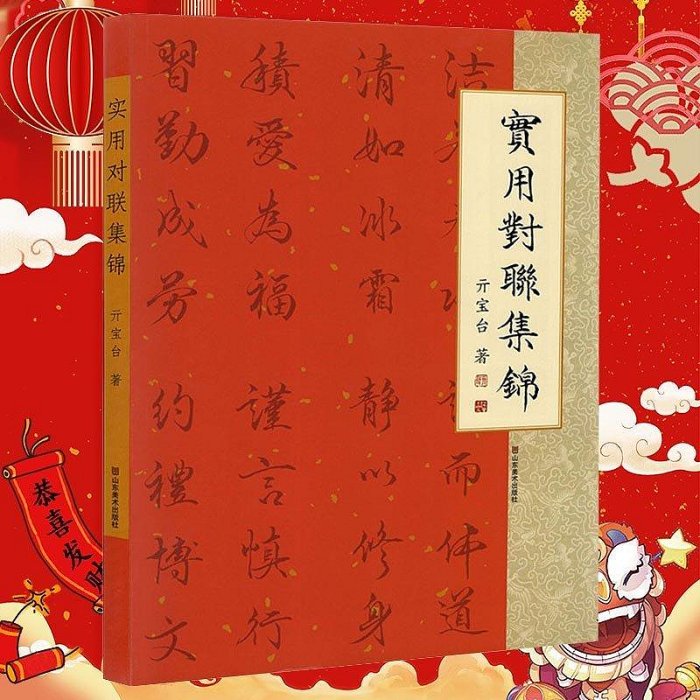 實用對聯集錦
亓宝台 著
山东美术出版社
洁
而体道
清如冰霜
静以修身
積愛為福
謹言慎行
習勤成劳
约禮博文
实用对联集锦
亓宝台 著
山东美术出版社
恭喜发财